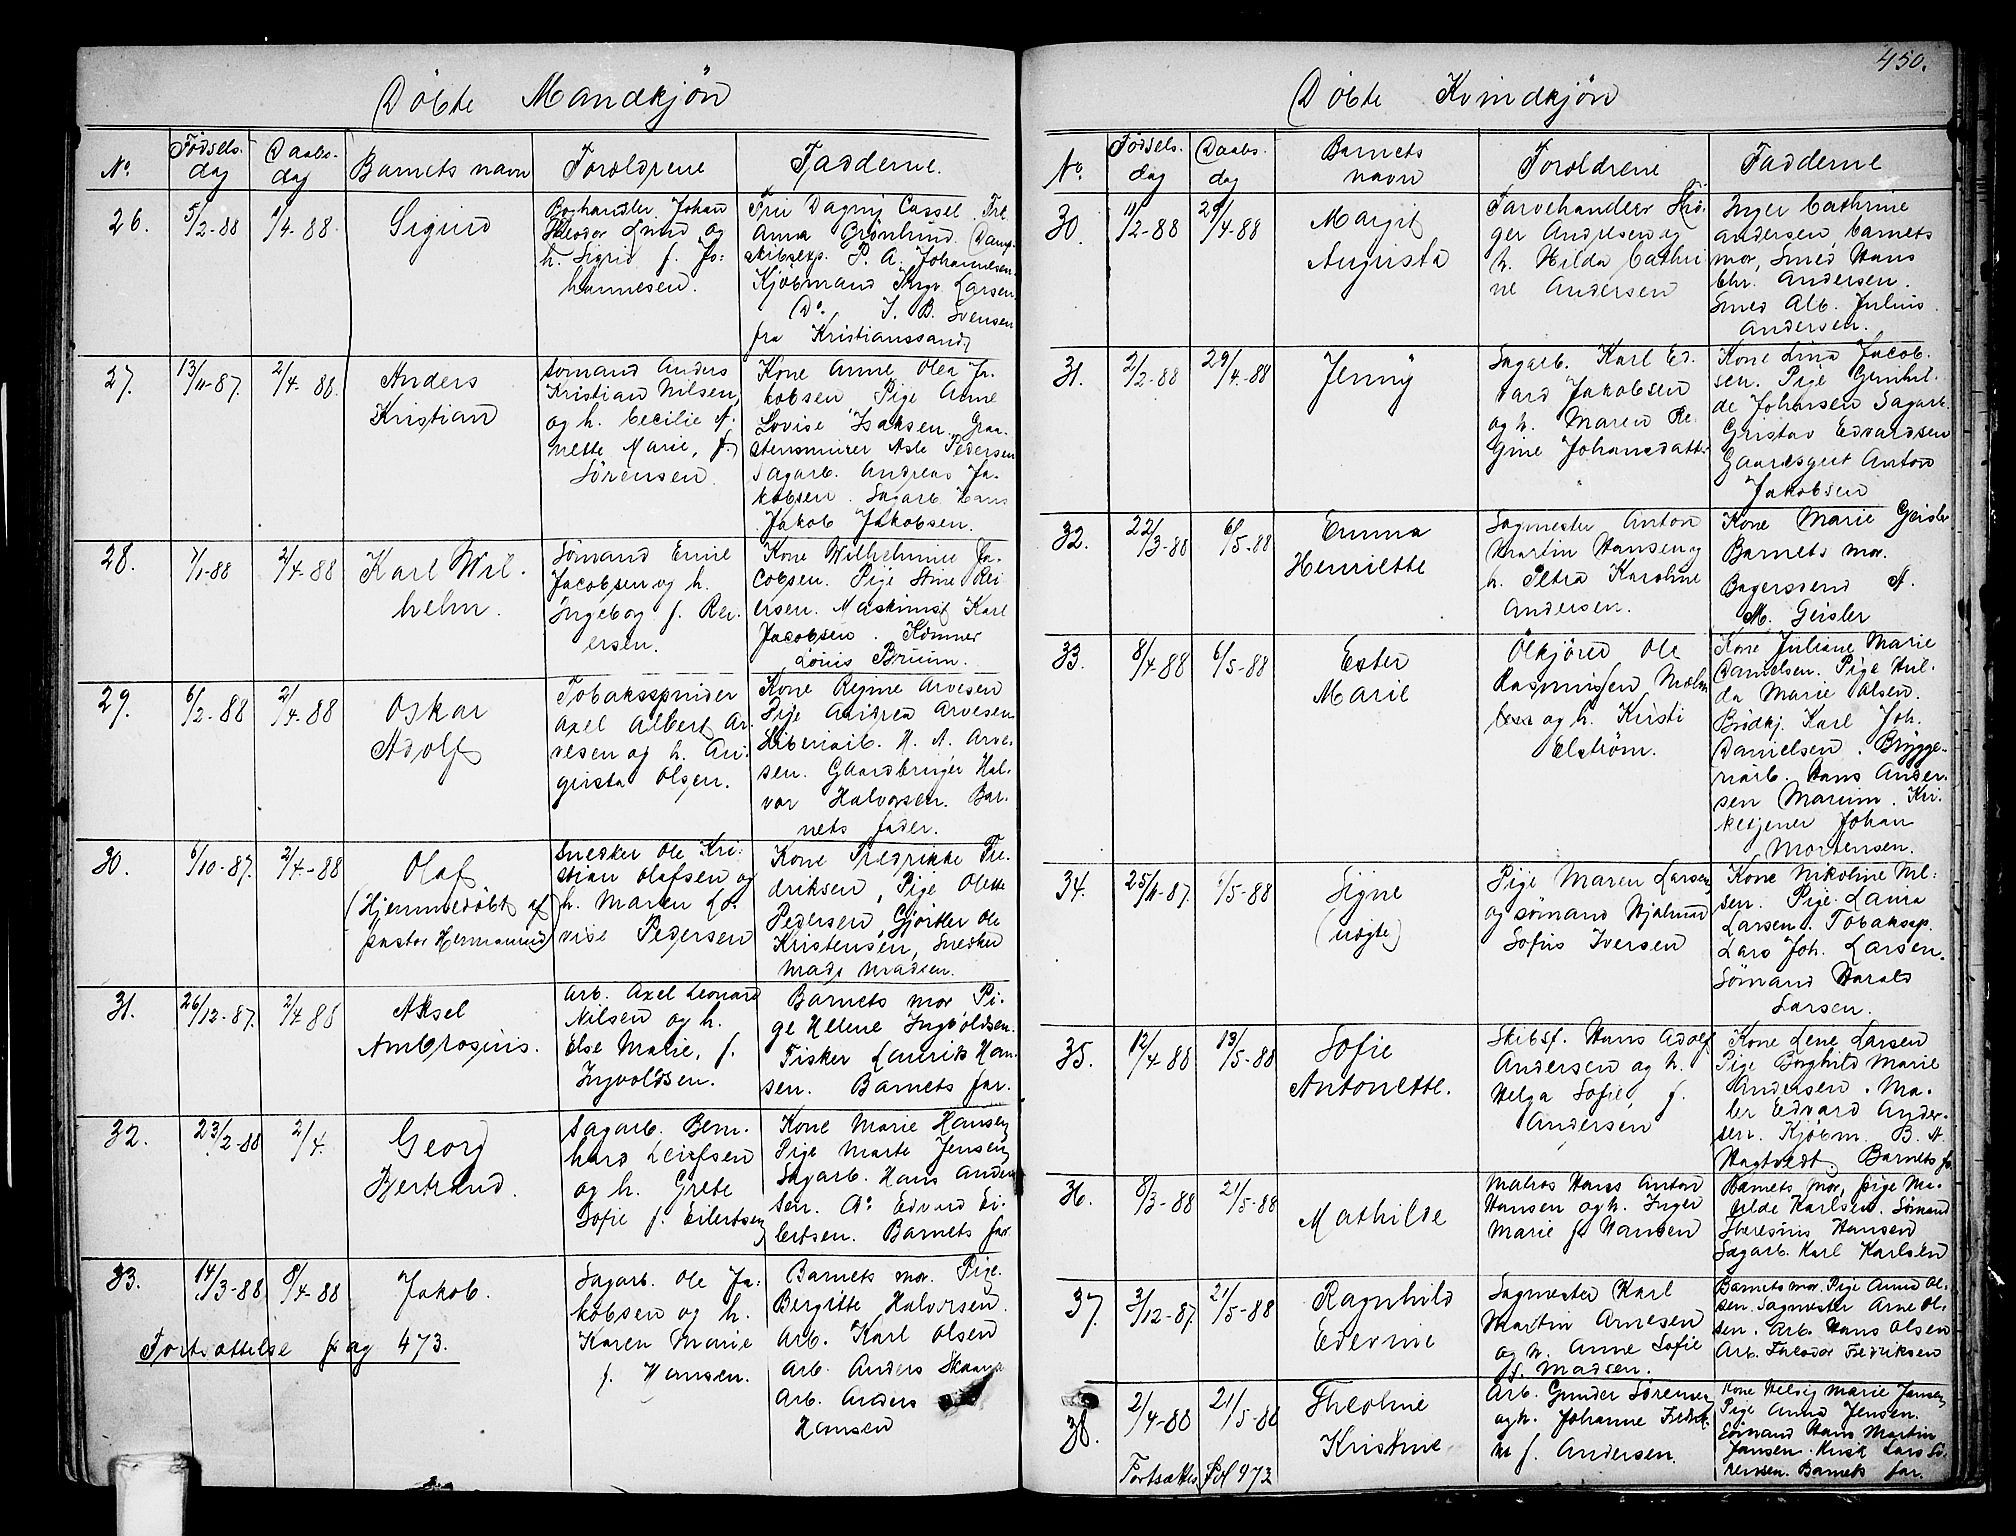 450.
Döbte Mandkjön
No. Födsels- dag Daabs- dag Barnets navn Foroldrene Fadderne.
26. 5/2-88 1/4-88. Sigurd
Boghandler Johan
Theodor Lund og
h. Sigrid f. Jo-
hannesen.
Fru Dagny Cassel. Frk.
Anna Grönlund. Damp-
skibsexp. P. A. Johannesen
Kjöbmand Ingv. Larsen
Do. J. B. Svensen
fra Kristianssand
27. 13/11-87. 2/4-88. Anders
Kristian
Sömand Anders
Kristian Nilsen,
og h. Cecilie A-
nette Marie, f.
Sörensen.
Kone Anne Olea Ja-
kobsen Pige Anne
Lovise Isaksen. Graa-
stensmurer Asle Pedersen
Sagarb. Andreas Ja-
kobsen. Sagarb. Hans
Jakob Jakobsen.
28. 7/1-88 2/4-88 Karl Wil-
helm.
Sömand Emil
Jacobsen og h.
Ingeborg f. Rei-
ersen.
Kone Wilhelmine Ja-
cobsen. Pige Stine Rei-
ersen. Maskinist Karl
Jacobsen. Tömmer
Louis Bruun.
29. 6/2-88 2/4-88 Oskar
Adolf
Tobaksspinder
Axel Albert Ar-
vesen og h. Au-
gusta Olsen.
Kone Regine Arvesen
Pige Andrea Arvesen
H. A. Arve-
sen. Gaardbruger Hal-
vor Halvorsen. Bar-
nets fader.
30. 6/10-87. 2/4-88 Olaf
(Hjemmedöbt af
pastor Hermanrud)
Snedker Ole Kri-
stian Olafsen og
h. Maren Lo-
vise Pedersen
Kone Fredrikke Fre-
driksen, Pige Olette
Pedersen, Gjörtler Ole
Kristensen, Snedker
Mads Madsen.
31. 26/12-87. 2/4-88 Aksel
Ambrosius.
Arb. Axel Leonard
Nilsen og h.
Else Marie, f.
Ingvoldsen.
Barnets mor Pi-
ge Helene Ingvoldsen.
Fisker Laurits Han-
sen. Barnets far.
32. 23/2-88 2/4. Georg
Bertrand.
Sagarb. Bern-
hard Leifsen
og h. Grete
Sofie f. Eilertsen
Kone Marie Hansen
Pige Marte Jensen
Sagarb. Hans Ander-
sen. Do Edvard Ei-
lertsen. Barnets far.
33. 14/3-88 8/4-88 Jakob.
Sagarb. Ole Ja-
kobsen og h.
Karen Marie
f. Hansen.
Barnets mor. Pige
Bergitte Halvorsen.
Arb. Karl Olsen
Arb. Anders
Arb. Anders
Hansen
Fortsættelse pag 473.
Döbte Kvindkjön
No. Födsels- dag Daabs- dag Barnets navn Foroldrene Fadderne
30. 11/2-88 29/4-88 Margit
Augusta
Farvehandler
Andresen og
h. Hilda Cathri
ne Andersen
Inger Cathrine
Andersen, barnets
mor, Smed Hans
Chr. Andersen.
Smed Alb. Julius
Andersen.
31. 2/2-88 29/4-88 Jenny
Sagarb. Karl Ed-
vard Jakobsen
og h. Maren Re-
gine Johansdatter
Kone Lina Jacob-
sen. Pige Gunhil-
de Johansen Sagarb.
Gustav Edvardsen
Gaardsgut Anton
Jakobsen
32. 22/3-88 6/5-88 Emma
Henriette
Sagmester Anton
Martin Hansen og
h. Petra Karoline
Andersen.
Kone Marie Geisler
Barnets mor.
Bagersvend A.
M. Geisler
33. 8/4-88 6/5-88 Ester
Marie
Ölkjörer Ole
Rasmussen
og h. Kirsti
Elström.
Kone Juliane Marie
Danielsen. Pige Hul-
da Marie Olsen.
Brödkj. Karl Joh.
Danielsen. Brygge-
riarb. Hans Ander-
sen Maruim. Kir-
ketjener Johan
Mortensen.
34. 25/11-87. 6/5-88 Signe
(uægte)
Pige Maren Larsen
og sömand Hjalmar
Sofus Iversen
Kone Nikoline Nil-
sen. Pige Laura
Larsen. Tobakssp.
Lars Joh. Larsen.
Sömand Harald
Larsen.
35. 12/4-88 13/5-88 Sofie
Antonette.
Skibsf. Hans Adolf
Andersen og h.
Helga Sofie, f.
Andersen
Kone Lene Larsen
Pige Borghild Marie
Andersen. Ma-
ler Edvard Ander-
sen. Kjöbm. B. A.
Hagtvedt. Barnets far
36. 8/3-88 21/5-88 Mathilde
Matros Hans Anton
Hansen og h. Inger
Marie f. Hansen
Barnets mor, pige Ma-
tilde Karlsen. Sömand
Theresius Hansen
Sagarb. Karl Karlsen
37. 3/12-87. 21/5-88 Ragnhild
Edevine
Sagmester Karl
Martin Arnesen
og h. Anne Sofie
f. Madsen.
Barnets mor. Pige Anna Ol-
sen. Sagmester Arne Ol-
sen. Arb. Hans Olsen
Arb. Theodor Fredriksen
38. 2/4-88 21/5-88 Theoline
Kristine.
Arb. Gunder Sörensen
og h. Johanne Fredrik-
ke f. Andersen.
Kone Helvig Marie Jansen
Pige Anna Jensen.
Sömand Hans Martin
Jansen. Lars Sö-
rensen. Barnets far.
Fortsættes fol 473